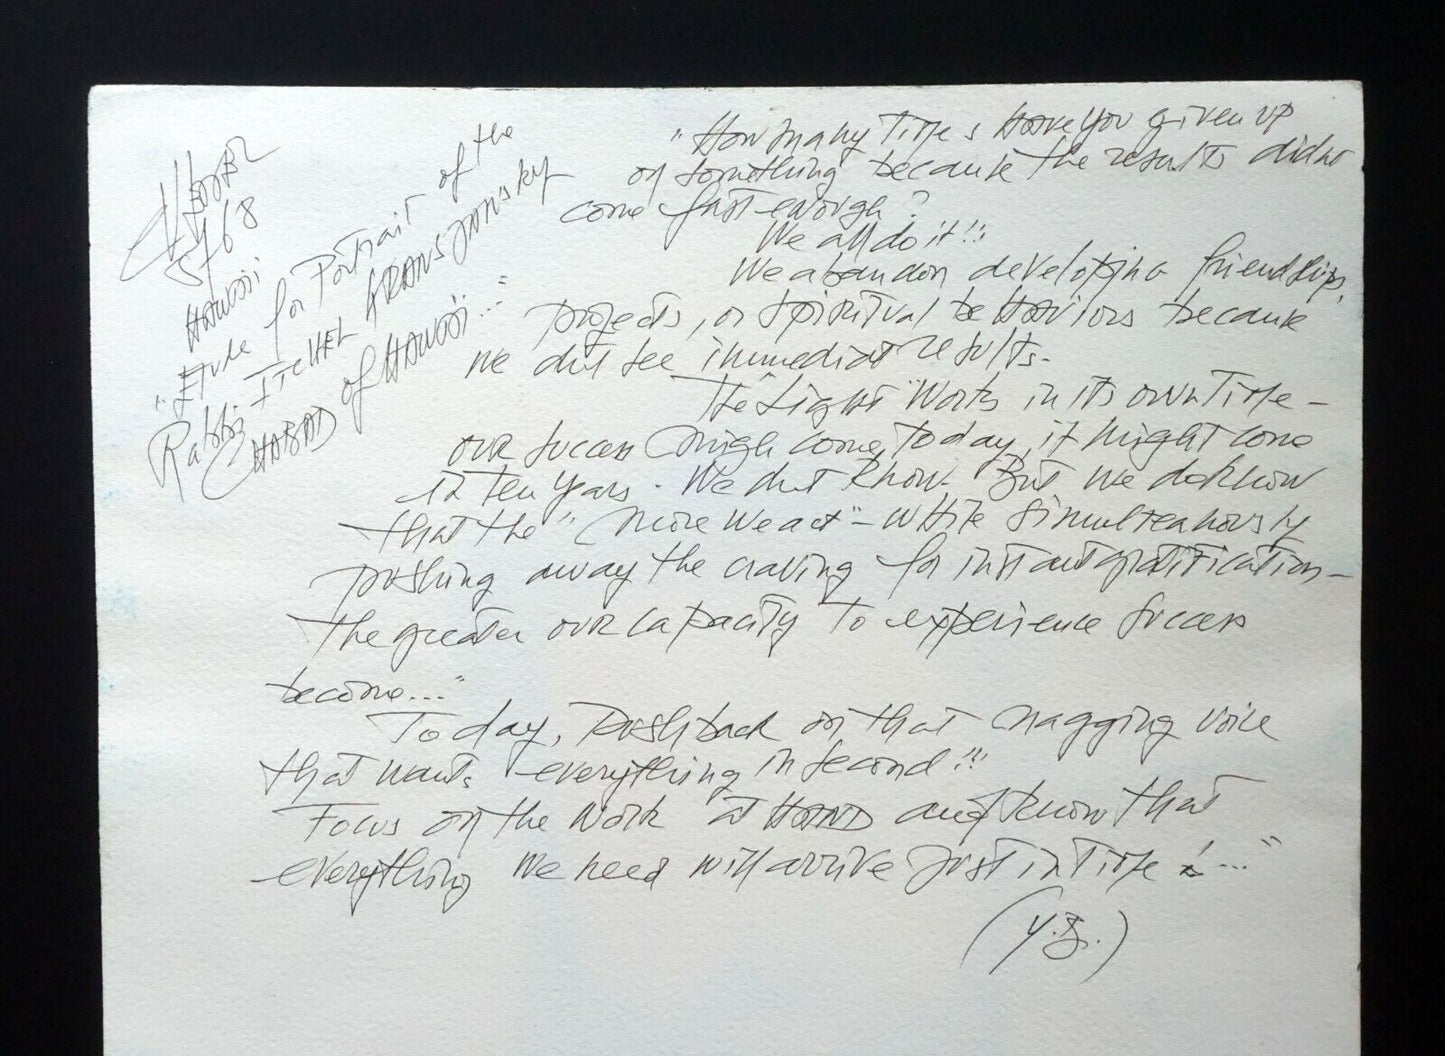 5768
Hawaii
"Etude for Portrait of the
Rabbi Itchel KRANSJANSKY
CHABAD of HAWAII..."
"How many Times Have you given up
on something because the results didnt
come fast enough?
We all do it!!!
We abandon developing friendships,
projects, or spiritual beHAViors because
we dnt see immediat results.
The "Light" Works in its own Time –
our success migh come today, it might come
in Ten years. We dnt know. But we do know
that the "more we act" – while simulteanously
pushing away the craving for instant gratification –
the greater our capacity To experience success
become..."
Today, Push back on that nagging voice
that wants everything in second!!!
Focus on the work at HAND and know that
everything we need will arrive just in Time!..."
(Y.B.)